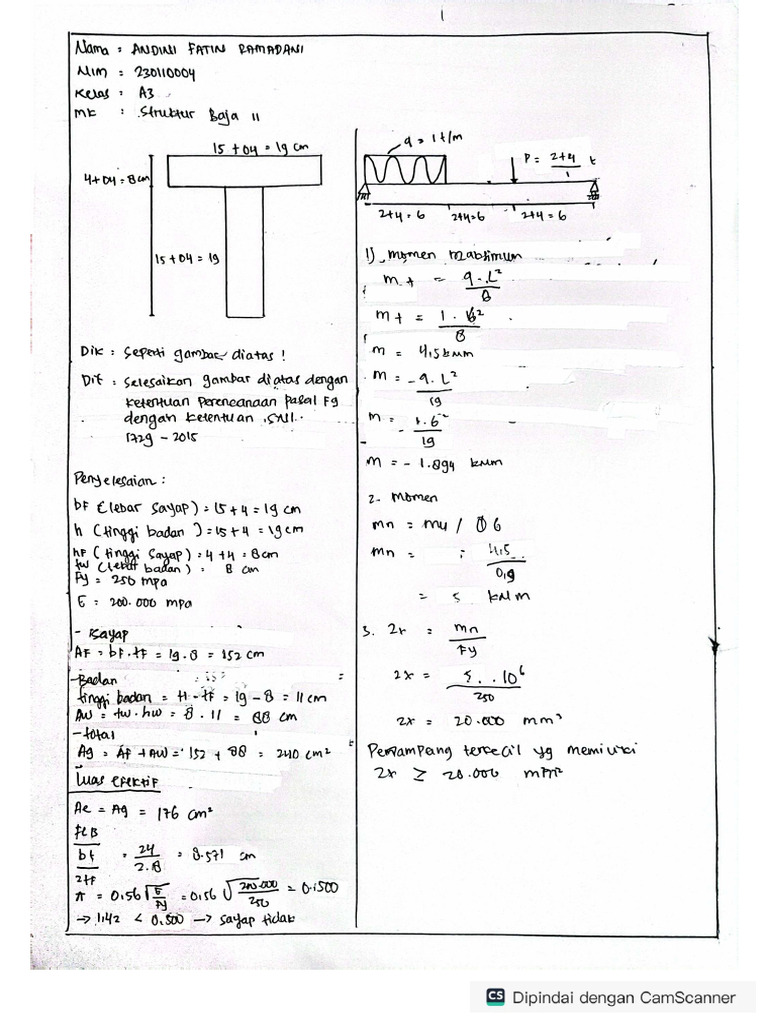 1
Nama : ANDINI FATIN RAMADANI
Nim : 230110004
Kelas : A3
MK : Struktur Baja II
15 + 04 = 19 cm
4 + 04 = 8 cm
15 + 04 = 19
Dik : Seperti gambar diatas !
Dit : Selesaikan gambar diatas dengan
ketentuan Perencanaan Pasal F9
dengan ketentuan SNI.
1729 - 2015
Penyelesaian :
bF (lebar sayap) = 15 + 4 = 19 cm
h (tinggi badan) = 15 + 4 = 19 cm
hF (tinggi sayap) = 4 + 4 = 8 cm
tw (lebar badan) = 8 cm
Fy = 250 mpa
E = 200.000 mpa
- Sayap
AF = bF . tF = 19 . 8 = 152 cm
- Badan
tinggi badan = H - tF = 19 - 8 = 11 cm
Aw = tw . hw = 8 . 11 = 88 cm
- total
Ag = AF + Aw = 152 + 88 = 240 cm²
Luas efektif
Ae = Ag = 176 cm²
FLB
bf / 2tf = 24 / 2.8 = 8.571 cm
π = 0.56 √ E / Fy = 0.56 √ 200.000 / 250 = 0.1500
→ 1.42 < 0.500 → sayap tidak
q = 1 t/m
P = 2+4 / 1 t
2+4 = 6
2+4=6
2+4 = 6
1) Momen Maksimum
M+ = q . L² / 8
M+ = 1 . 6² / 8
M = 4,5 kNm
M = - q . L² / 19
M = - 1 . 6² / 19
M = - 1.894 kNm
2. Momen
Mn = Mu / Ø 6
Mn = : 4,5 / 0,9
= 5 kNm
3. Zx = Mn / Fy
Zx = 5 . 10⁶ / 250
Zx = 20.000 mm³
Penampang terkecil yg memiliki
Zx ≥ 20.000 mm²
CS Dipindai dengan CamScanner